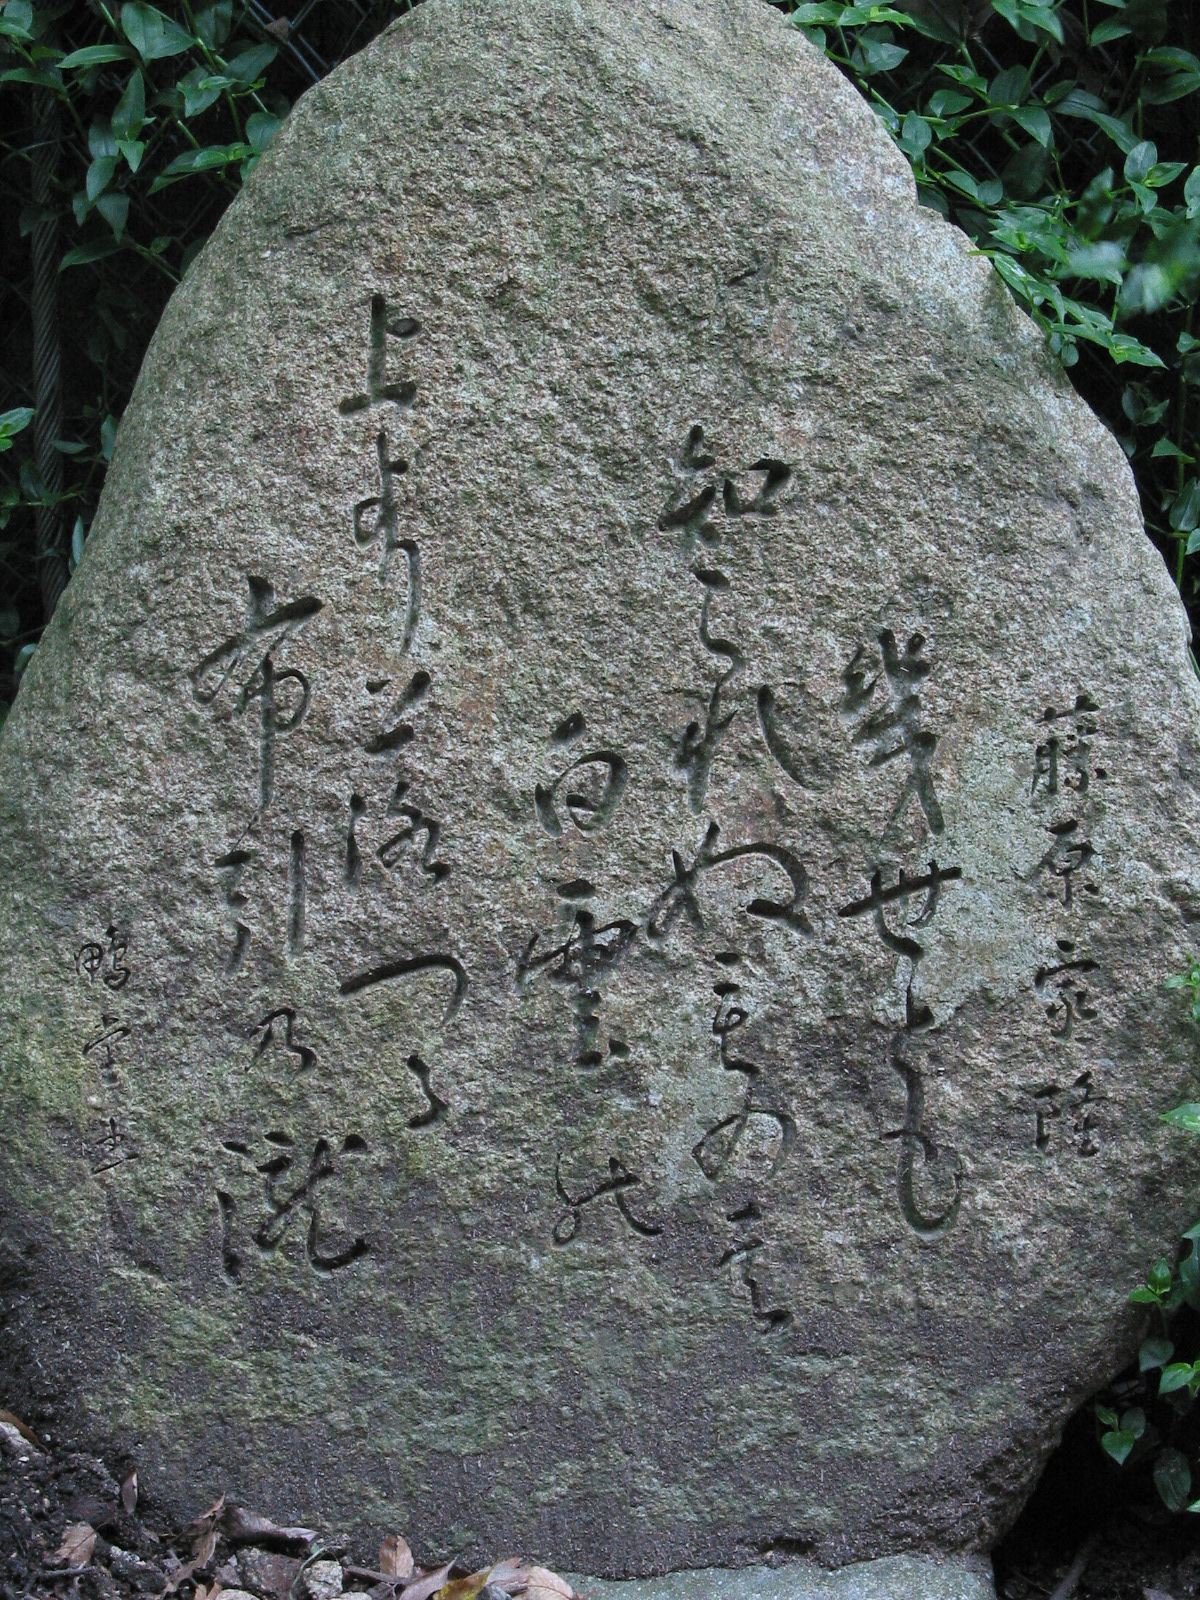 藤原家隆
幾世とも
知られぬものは
白雲の
上より落つる
布引の瀧
鴨堂書